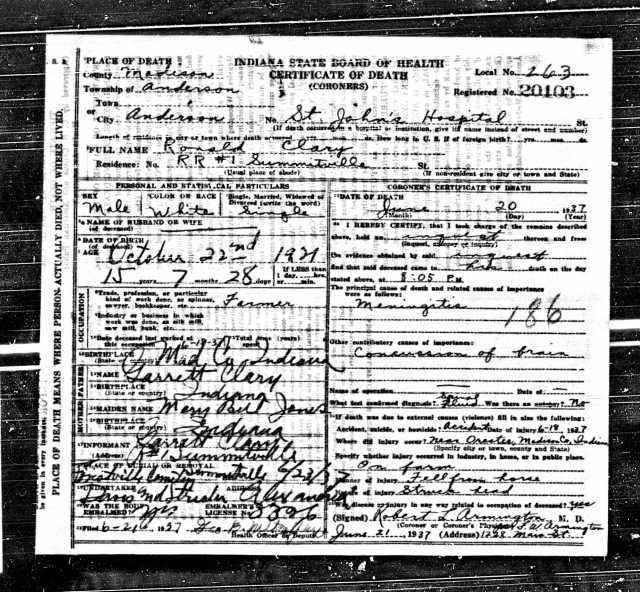 PLACE OF DEATH
INDIANA STATE BOARD OF HEALTH
County Madison
CERTIFICATE OF DEATH
Local No. 263
Township of Anderson
(CORONERS)
Registered No. 20103
Town
or
City Anderson No. St. John's Hospital St.
(If death occurred in a hospital or institution, give its name instead of street and number)
Length of residence in city or town where death occurred yrs. mos. ds. How long in U. S. if of foreign birth? yrs. mos. ds.
FULL NAME Ronald Clary
Residence: No. RR #1 Summitville St.
(Usual place of abode) (If non-resident give city or town and State)
PLACE OF DEATH MEANS WHERE PERSON ACTUALLY DIED, NOT WHERE LIVED.
PERSONAL AND STATISTICAL PARTICULARS
SEX COLOR OR RACE Single, Married, Widowed or Divorced (write the word)
Male White Single
NAME OF HUSBAND OR WIFE
(of deceased)
DATE OF BIRTH
(of deceased) October 22nd 1921
AGE
15 years 7 months 28 days If LESS than 1 day, hrs. or min.
OCCUPATION
Trade, profession, or particular kind of work done, as spinner, sawyer, bookkeeper, etc. Farmer
Industry or business in which work was done, as silk mill, saw mill, bank, etc.
Date deceased last worked at this occupation Total time (years)
BIRTHPLACE Mad Co. Indiana
(State or country)
NAME Garrett Clary
BIRTHPLACE Indiana
(State or country)
MOTHER
MAIDEN NAME Mary Bell Jones
BIRTHPLACE Indiana
(State or country)
INFORMANT Garrett Clary
R#1 Summitville
PLACE OF BURIAL OR REMOVAL
Summitville 6/23/37
UNDERTAKER ADDRESS
Alexandria
WAS THE BODY EMBALMED? yes EMBALMER'S LICENSE No. 3396
Filed 6-21 1937
Health Officer or Deputy
CORONER'S CERTIFICATE OF DEATH
DATE OF DEATH
June 20 1937
(Month) (Day) (Year)
I HEREBY CERTIFY, that I took charge of the remains described
above, held an inquest thereon and from
(Inquest, autopsy or inquiry)
the evidence obtained by said inquest
find that said deceased came to his death on the day
stated above, at 8:05 P.M.
The principal cause of death and related causes of importance
were as follows:
Meningitis
186
Other contributory causes of importance:
Concussion of brain
Name of operation Date of
What test confirmed diagnosis? Was there an autopsy? No
If death was due to external causes (violence) fill in also the following:
Accident, suicide, or homicide? Accident Date of injury 6-18 1937
Where did injury occur? Near Orestes, Madison Co, Indiana
(Specify city or town, county and State)
Specify whether injury occurred in industry, in home, or in public place.
On farm
Manner of injury Fell from horse
Nature of injury Struck head
Was disease or injury in any way related to occupation of deceased? yes
(Signed) Robert L. Armington M. D.
(Coroner or Coroner's Physician)
June 21, 1937 (Address)